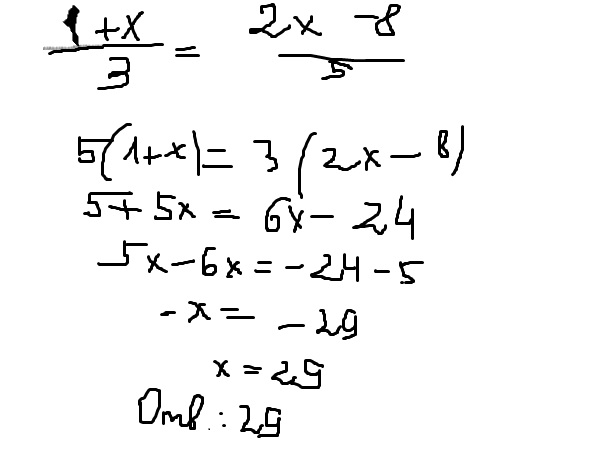 (1+x)/3 = (2x-8)/5
5(1+x)=3(2x-8)
5+5x=6x-24
5x-6x=-24-5
-x=-29
x=29
Отв.:29